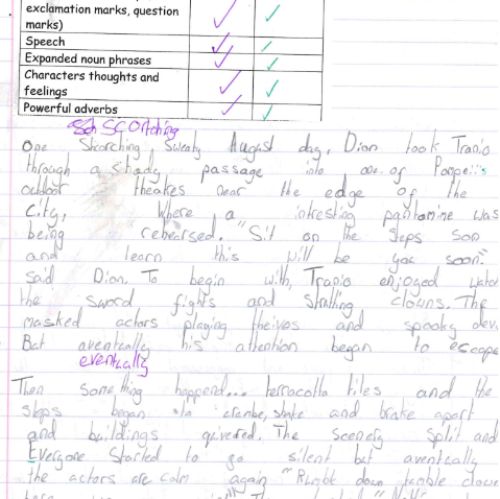 exclamation marks, question
marks)
Speech
Expanded noun phrases
Characters thoughts and
feelings
Powerful adverbs
Sch Scorching
One Skorching, Sweaty August day, Dion took Tranio
through a shady passage into one of Pompeii's
outdoor theatres near the edge of the
City, Where a intresting pantomine was
being rehearsed. "Sit on the steps son
and learn this will be you soon."
said Dion. To begin with, Tranio enjoyed watch
the sword fights and clowns. The
masked actors playing theives and spooky
But aventcally his attention began to escape
eventually
Then something happend... terracotta tiles and the
steps began to shake and brake apart
and buildings quivered. The Scenery Split and
Everyone Started to go silent but aventcally
the actors are calm again "Rumble down tumble down